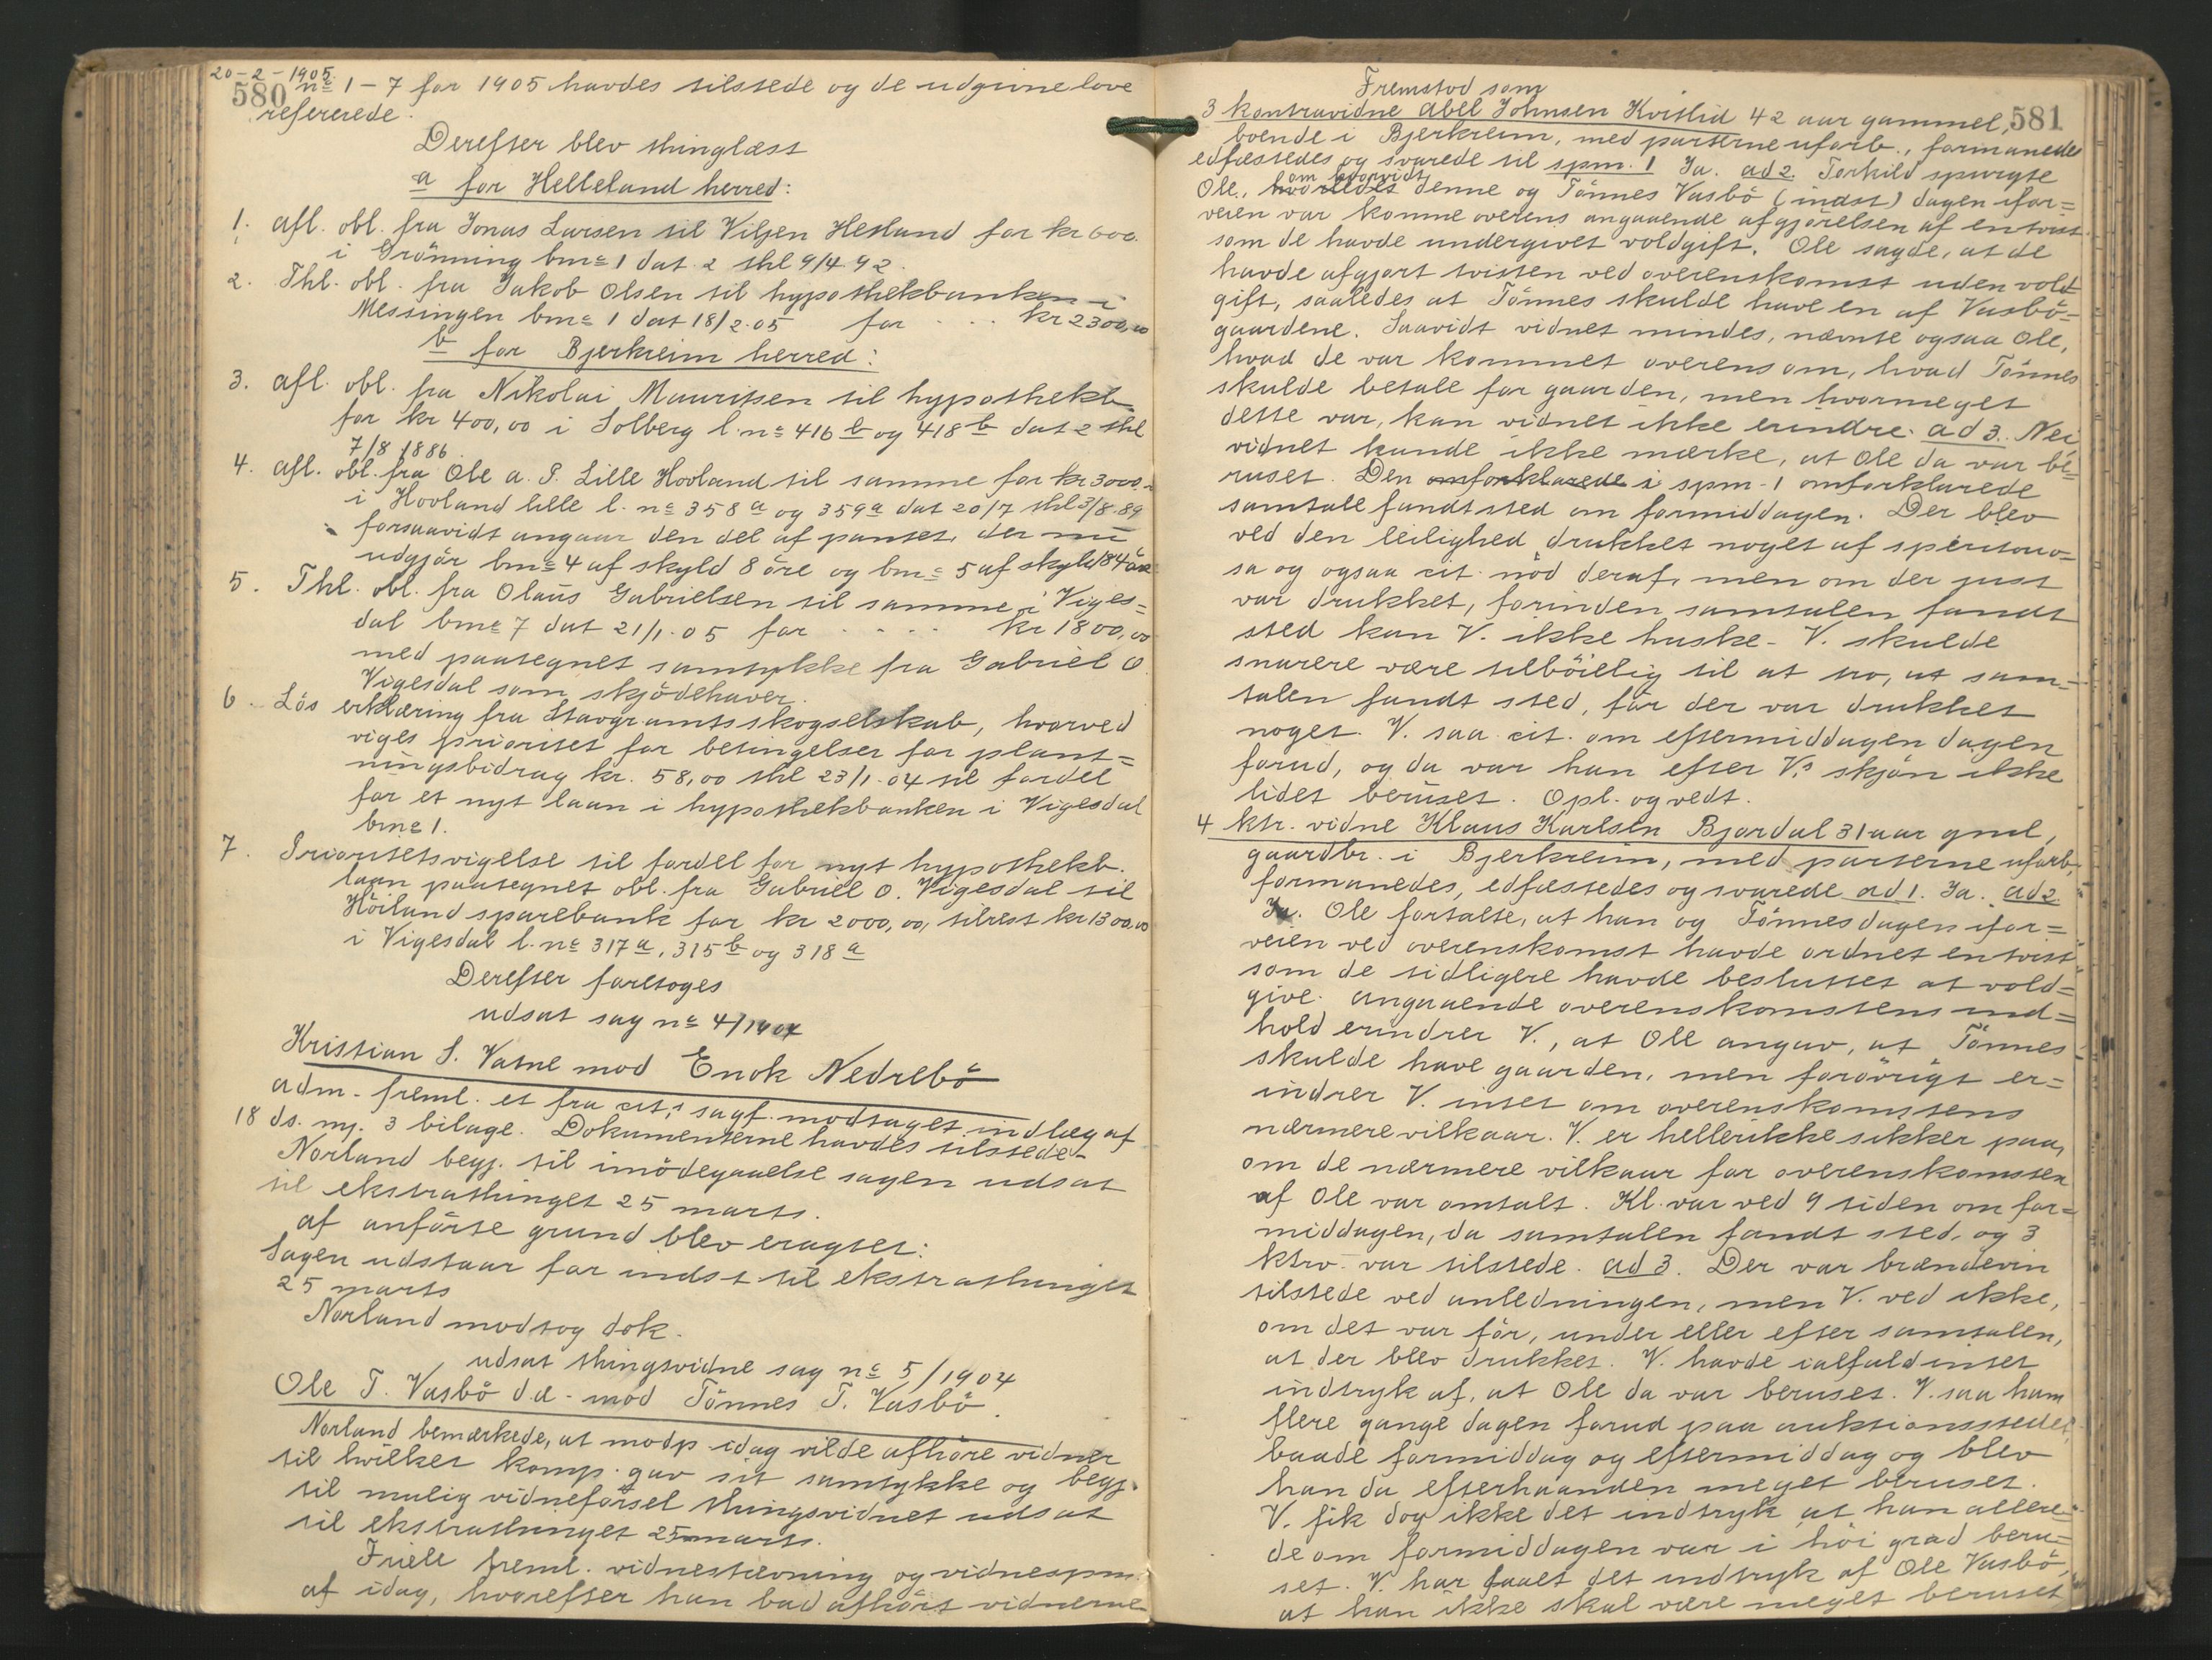 20-2-1905.
580
no 1-7 for 1905 havdes tilstede og de udgivne love
refererede.
Derefter blev thinglæst
a for Helleland herred:
1. afl. obl. fra Jonas Larsen til Heskand for kr 600.
i Grönning bno 1 dat. 2 thl 9/4 92.
2. Thl. obl. fra Jakob Olsen til hypothekbanken i
Messingen bno 1 dat 18/2.05 for . . . kr 2300,00
b for Bjerkreim herred:
3. afl. obl. fra Nikolai Mauritsen til hypothekb.
for kr 400,00 i Solberg l.no 416 b og 418 b dat 2 thl
7/8 1886.
4. afl. obl. fra Ole a. P. Lille Hovland til samme for kr 3000.-
i Hovland lille l. no 358 a og 359 a dat 20/7 thl 3/8.89
forsaavidt angaar den del af pantet, der nu
udgjör bno 4 af skyld 8 öre og bno 5 af skyld 184 öre
5. Thl. obl. fra Olaus Gabrielsen til samme i Viges=
dal bno 7 dat 21/1.05 for . . . . kr 1800,00
med paategnet samtykke fra Gabriel O
Vigesdal som skjödehaver.
6. Lös erklæring fra Stavgr amts skogselskab, hvorved
viges prioritet for betingelser for plant=
ningsbidrag kr. 58,00 thl 23/1.04 til fordel
for et nyt laan i hypothekbanken i Vigesdal
bno 1.
7. Prioritetsvigelse til fordel for nyt hypothekb.
laan paategnet obl. fra Gabriel O. Vigesdal til
Hörland sparebank for kr 2000,00, tilrest kr 1300,00
i Vigesdal l.no 317 a, 315 b og 318 a
Derefter foretoges
udsat sag no 4/1904
Kristian S. Vatne mod Enok Nedrebö
adm. freml. et fra cit.s sagf. modtaget indlæg af
18 ds. m. 3 bilage. Dokumenterne havdes tilstede.
Norland begj. til imödegaaelse sagen udsat
til ekstrathinget 25 marts.
af anförte grund blev eragtet:
Sagen udstaar for indst til ekstrathinget
25 marts
Norland modtog dok.
udsat thingsvidne sag no 5/1904
Ole T. Vasbö d.æ. mod Tönnes T. Vasbö.
Norland bemærkede, at modp idag vilde afhöre vidner
til hvilket komp. gav sit samtykke og begj.
til mulig vidneförsel thingsvidnet udsat
til ekstrathinget 25 marts.
Friele freml. vidnestævning og vidnespm.
af idag, hvorefter han bad afhört vidnerne
Fremstod som
581
3 kontravidne Abel Johnsen Kvitlid 42 aar gammel,
boende i Bjerkreim, med parterne uforb., formanedes
edfæstedes og svarede til spm. 1 Ja. ad 2. Torkild spurgte
Ole, om hvorvidt denne og Tönnes Vasbö (indst) dagen ifor=
veien var komne overens angaaende afgjörelsen af en tvist
som de havde undergivet voldgift. Ole sagde, at de
havde afgjort tvisten ved overenskomst uden vold
gift, saaledes at Tönnes skulde have en af Vasbö-
gaardene. Saavidt vidnet mindes, nævnte ogsaa Ole,
hvad de var kommet overens om, hvad Tönnes
skulde betale for gaarden, men hvormeget
dette var, kan vidnet ikke erindre. ad 3. Nei
vidnet kunde ikke mærke, at Ole da var be=
ruset. Den omforklarede i spm. 1 omforklarede
samtale fandt sted om formiddagen. Der blev
ved den leilighed drukket noget af spirituo=
sa og ogsaa cit. nöd deraf, men om der just
var drukket, forinden samtalen fandt
sted kan V. ikke huske. V. skulde
snarere være tilböielig til at tro, at sam=
talen fandt sted, för der var drukket
noget. V. saa cit. om eftermiddagen dagen
forud, og da var han efter V.s skjön ikke
lidet beruset. Opl. og vedt.
4 ktr. vidne Klaus Karlsen Bjordal 31 aar gml,
gaardbr. i Bjerkreim, med parterne uforb,
formanedes, edfæstedes og svarede ad 1. Ja. ad 2.
Ja. Ole fortalte, at han og Tönnes dagen ifor=
veien ved overenskomst havde ordnet en tvist
som de tidligere havde besluttet at vold=
give. Angaaende overenskomstens ind=
hold erindrer V., at Ole angav, at Tönnes
skulde have gaarden, men forövrigt er=
indrer V. intet om overenskomstens
nærmere vilkaar. V. er heller ikke sikker paa,
om de nærmere vilkaar for overenskomsten
af Ole var omtalt. Kl. var ved 9 tiden om for=
middagen, da samtalen fandt sted, og 3
ktrv. var tilstede. ad 3. Der var brændevin
tilstede ved anledningen, men V. ved ikke,
om det var för, under eller efter samtalen,
at der blev drukket. V. havde ialfald intet
indtryk af, at Ole da var beruset. V. saa ham
flere gange dagen forud paa auktionsstedet,
baade formiddag og eftermiddag og blev
han da efterhaanden meget beruset.
V. fik dog ikke det indtryk at han allere=
de om formiddagen var i höi grad beru=
set. V. har faaet det indtryk af Ole Vasbö,
at han ikke skal være meget beruset